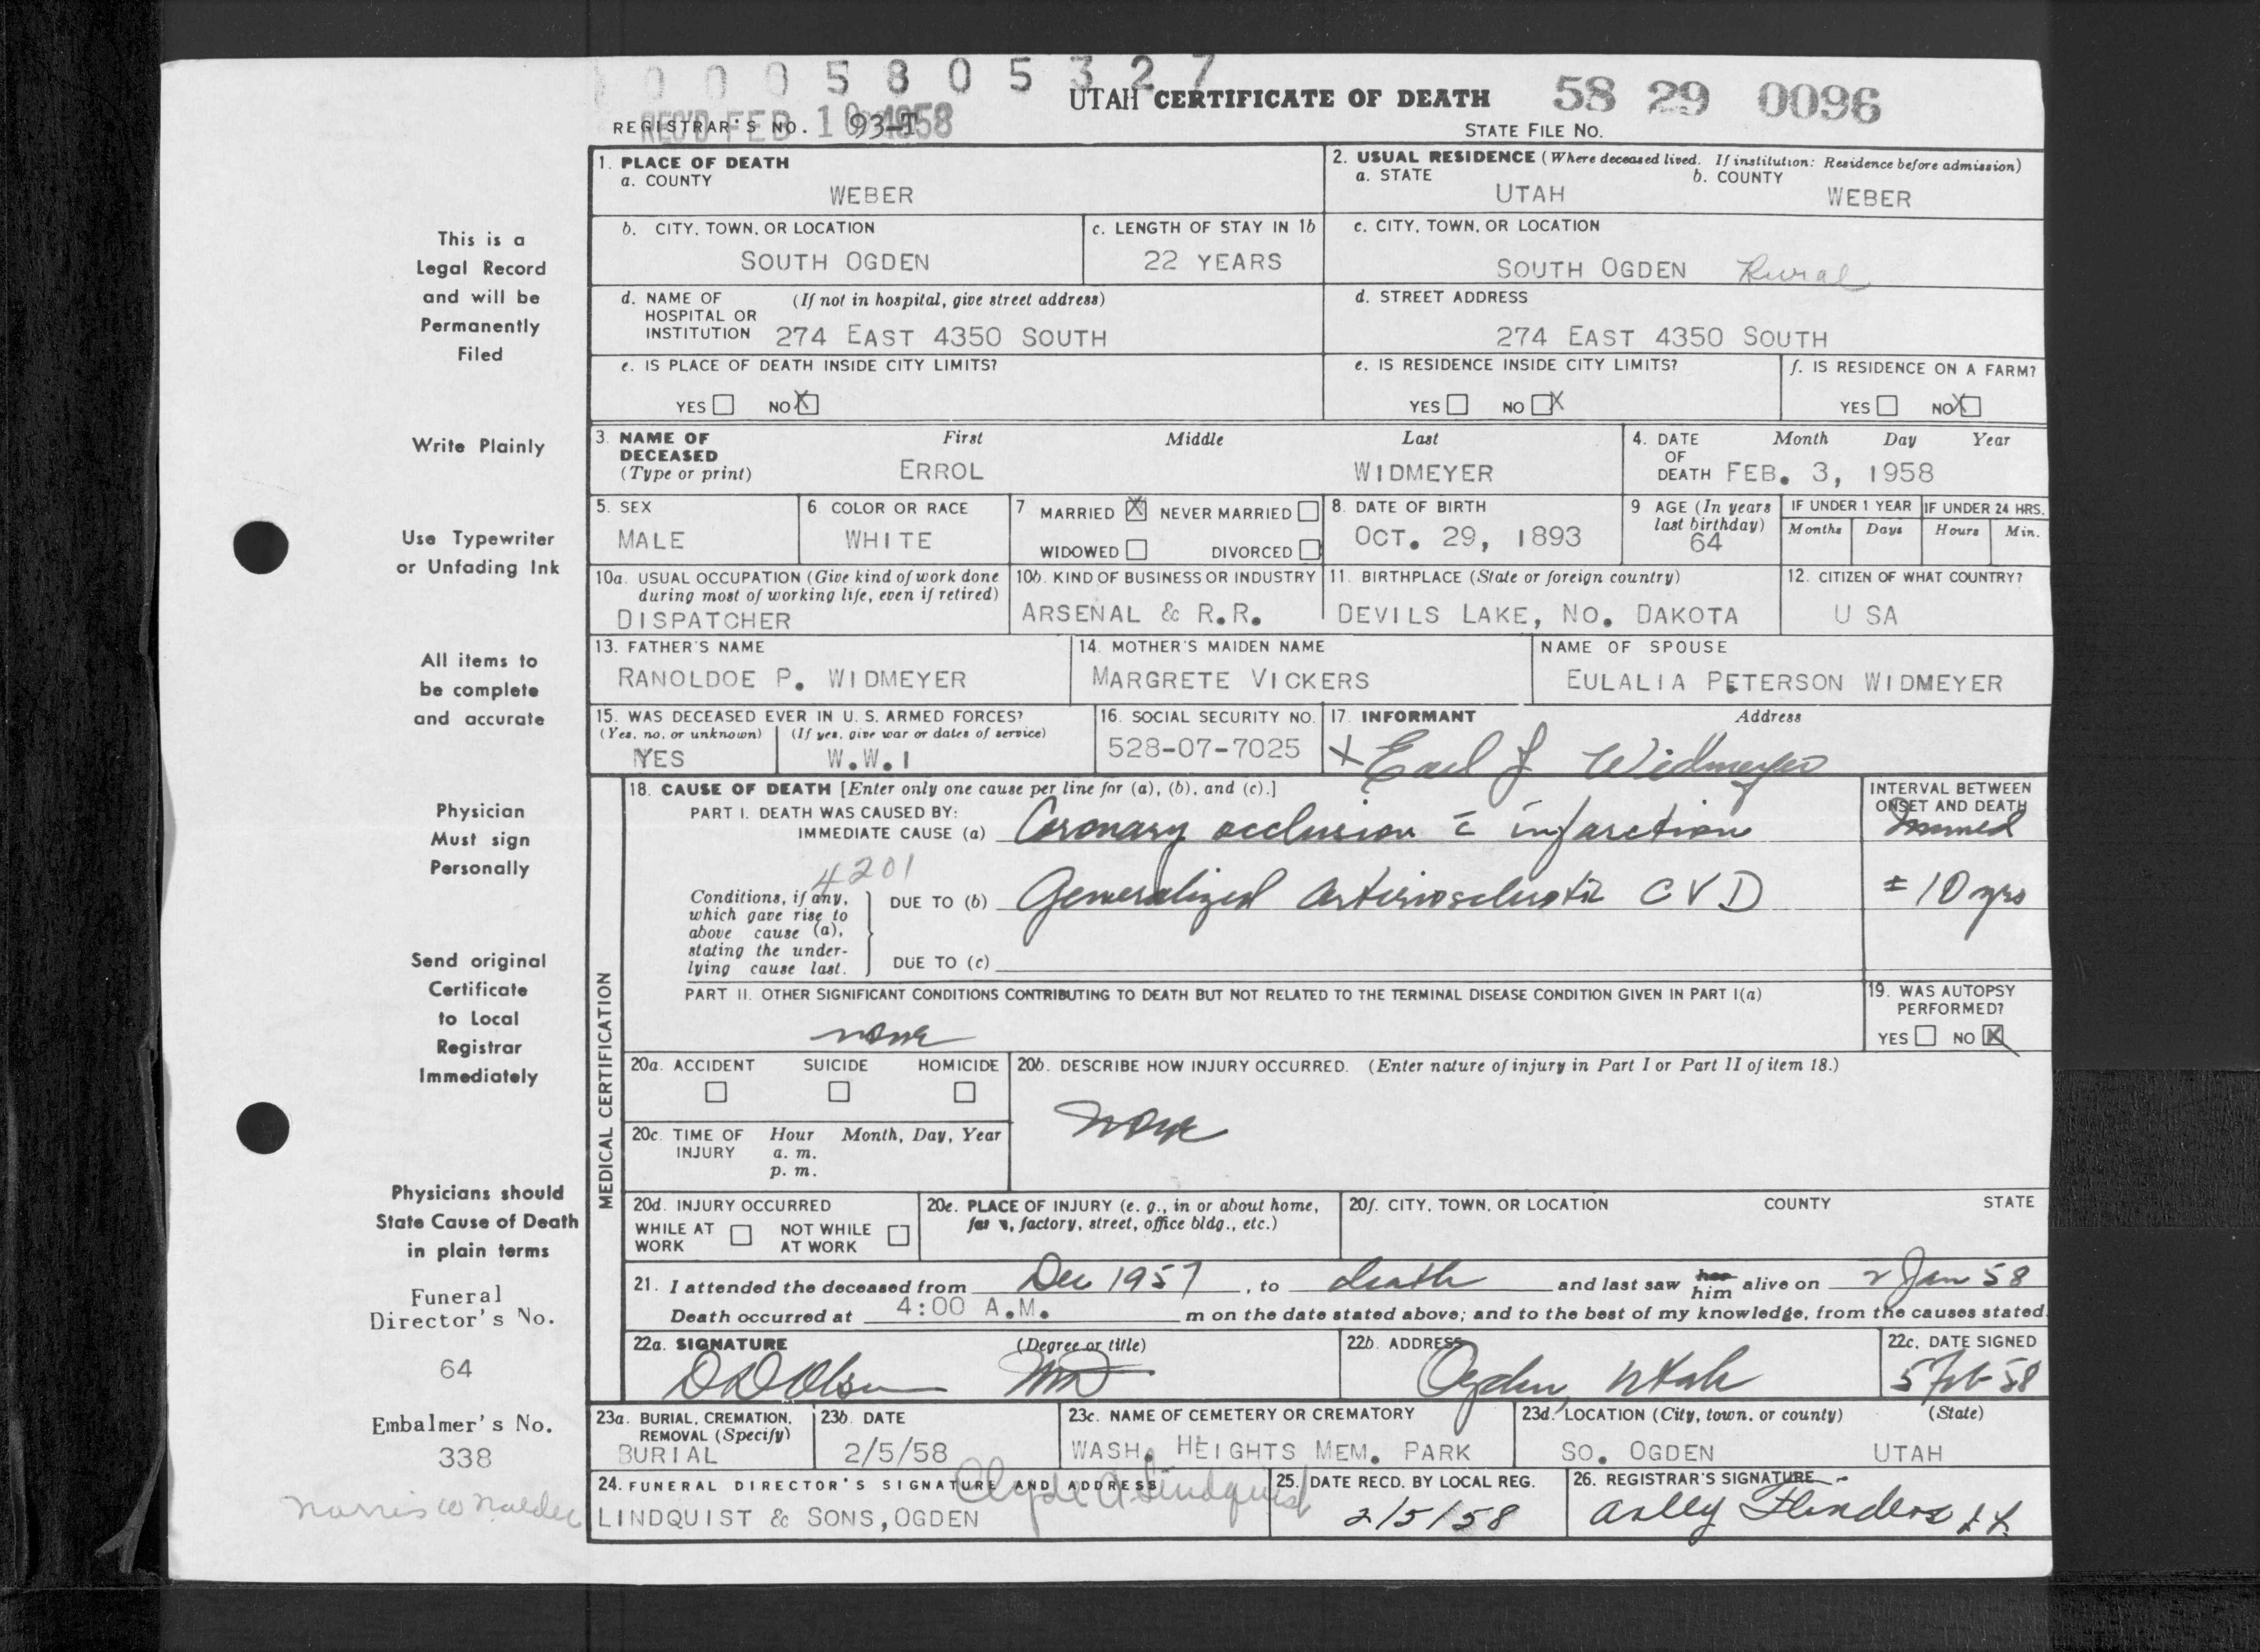 0 0 0 5 8 0 5 3 2 7
UTAH CERTIFICATE OF DEATH 58 29 0096
REGISTRAR'S NO. 93-T REC'D FEB 10 1958 STATE FILE NO.
This is a
Legal Record
and will be
Permanently
Filed
Write Plainly
Use Typewriter
or Unfading Ink
All items to
be complete
and accurate
Physician
Must sign
Personally
Send original
Certificate
to Local
Registrar
Immediately
Physicians should
State Cause of Death
in plain terms
Funeral
Director's No.
64
Embalmer's No.
338
Norris W
1. PLACE OF DEATH
a. COUNTY
WEBER
2. USUAL RESIDENCE (Where deceased lived. If institution: Residence before admission)
a. STATE b. COUNTY
UTAH WEBER
b. CITY, TOWN, OR LOCATION
SOUTH OGDEN
c. LENGTH OF STAY IN 1b
22 YEARS
c. CITY, TOWN, OR LOCATION
SOUTH OGDEN Rural
d. NAME OF (If not in hospital, give street address)
HOSPITAL OR
INSTITUTION 274 EAST 4350 SOUTH
d. STREET ADDRESS
274 EAST 4350 SOUTH
e. IS PLACE OF DEATH INSIDE CITY LIMITS?
YES NO X
e. IS RESIDENCE INSIDE CITY LIMITS?
YES NO X
f. IS RESIDENCE ON A FARM?
YES NO X
3. NAME OF First Middle Last
DECEASED
(Type or print) ERROL WIDMEYER
4. DATE Month Day Year
OF
DEATH FEB. 3, 1958
5. SEX
MALE
6 COLOR OR RACE
WHITE
7 MARRIED X NEVER MARRIED
WIDOWED DIVORCED
8. DATE OF BIRTH
OCT. 29, 1893
9 AGE (In years
last birthday)
64
IF UNDER 1 YEAR IF UNDER 24 HRS.
Months Days Hours Min.
10a. USUAL OCCUPATION (Give kind of work done
during most of working life, even if retired)
DISPATCHER
10b. KIND OF BUSINESS OR INDUSTRY
ARSENAL & R.R.
11. BIRTHPLACE (State or foreign country)
DEVILS LAKE, NO. DAKOTA
12. CITIZEN OF WHAT COUNTRY?
U SA
13. FATHER'S NAME
RANOLDOE P. WIDMEYER
14. MOTHER'S MAIDEN NAME
MARGRETE VICKERS
NAME OF SPOUSE
EULALIA PETERSON WIDMEYER
15. WAS DECEASED EVER IN U. S. ARMED FORCES?
(Yes, no, or unknown) (If yes, give war or dates of service)
YES W.W.I
16. SOCIAL SECURITY NO.
528-07-7025
17. INFORMANT Address
X Earl J Widmeyer
MEDICAL CERTIFICATION
18. CAUSE OF DEATH [Enter only one cause per line for (a), (b), and (c).]
PART I. DEATH WAS CAUSED BY:
IMMEDIATE CAUSE (a) Coronary occlusion c̄ infarction
INTERVAL BETWEEN
ONSET AND DEATH
Immed
4201
Conditions, if any,
which gave rise to
above cause (a),
stating the under-
lying cause last.
DUE TO (b) Generalized arteriosclerotic CVD ± 10 yrs
DUE TO (c)
PART II. OTHER SIGNIFICANT CONDITIONS CONTRIBUTING TO DEATH BUT NOT RELATED TO THE TERMINAL DISEASE CONDITION GIVEN IN PART I(a)
none
19. WAS AUTOPSY
PERFORMED?
YES NO X
20a. ACCIDENT SUICIDE HOMICIDE
20b. DESCRIBE HOW INJURY OCCURRED. (Enter nature of injury in Part I or Part II of item 18.)
none
20c. TIME OF Hour Month, Day, Year
INJURY a. m.
p. m.
20d. INJURY OCCURRED
WHILE AT NOT WHILE
WORK AT WORK
20e. PLACE OF INJURY (e. g., in or about home,
farm, factory, street, office bldg., etc.)
20f. CITY, TOWN, OR LOCATION COUNTY STATE
21. I attended the deceased from Dec 1957, to death and last saw her him alive on 2 Jan 58
Death occurred at 4:00 A.M. m on the date stated above; and to the best of my knowledge, from the causes stated.
22a. SIGNATURE (Degree or title)
D D Olsen MD
22b. ADDRESS
Ogden, Utah
22c. DATE SIGNED
5 Feb 58
23a. BURIAL, CREMATION,
REMOVAL (Specify)
BURIAL
23b. DATE
2/5/58
23c. NAME OF CEMETERY OR CREMATORY
WASH. HEIGHTS MEM. PARK
23d. LOCATION (City, town, or county) (State)
SO. OGDEN UTAH
24. FUNERAL DIRECTOR'S SIGNATURE AND ADDRESS
Clyde A Lindquist
LINDQUIST & SONS, OGDEN
25. DATE RECD. BY LOCAL REG.
2/5/58
26. REGISTRAR'S SIGNATURE
Arlly Flinders